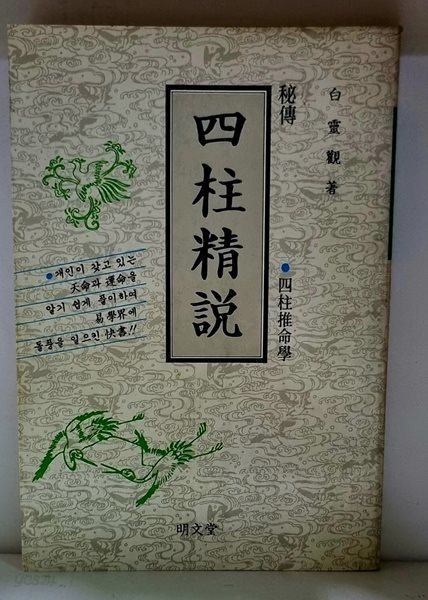 白靈觀 著
秘傳
四柱精説
●四柱推命學
●개인이 갖고 있는
天命과 運命을
알기 쉽게 풀이하여
易學界에
돌풍을 일으킨 快書!!
明文堂
yes24